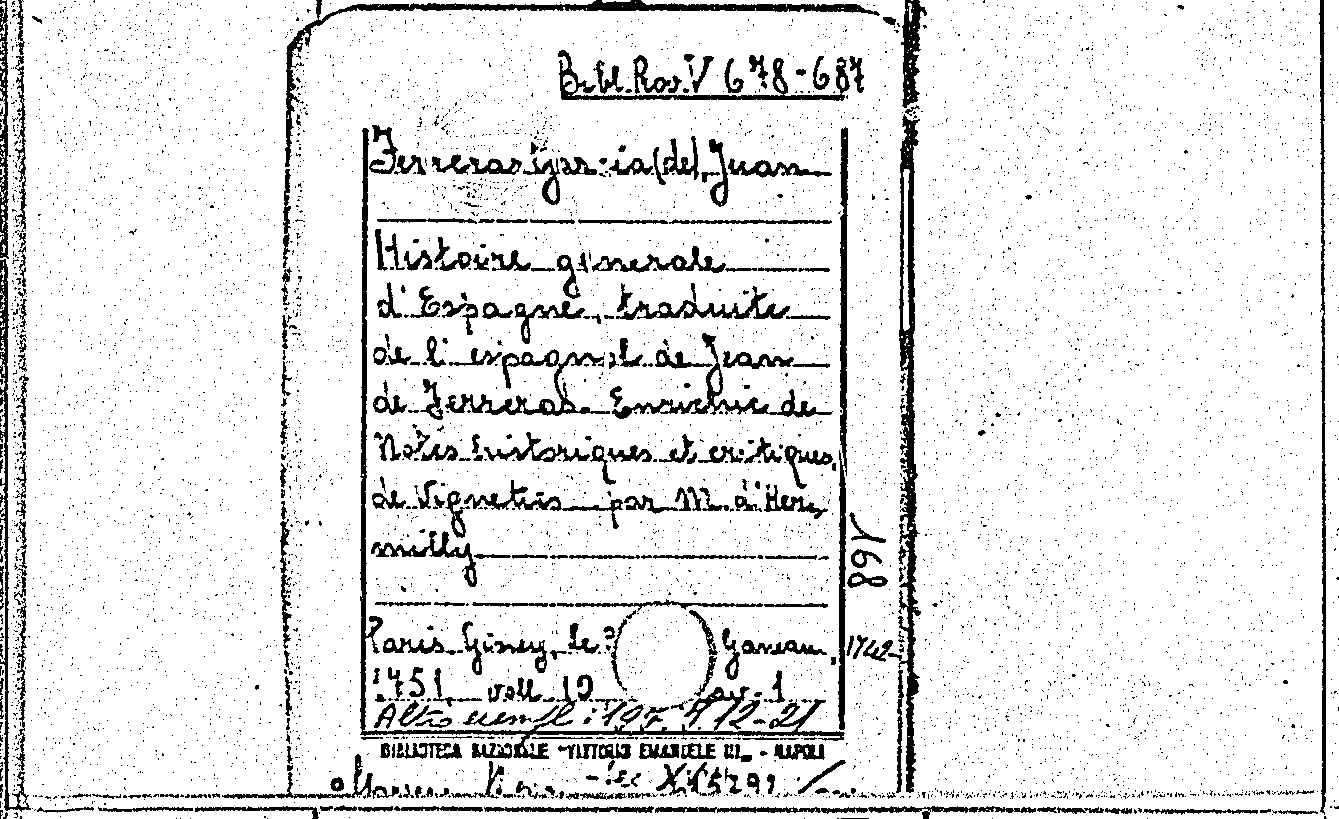 Bibl. Ros. V 678-687
Ferreras y garcia (de), Juan
Histoire generale
d'Espagne, traduite
de l'espagnol de Jean
de Ferreras. Enrichie de
Notes historiques et critiques,
de Vignettes par M. d'Her-
milly
168
Paris, Gissey, Le Ganeau, 1742-
1751 voll. 10 1
Altro esempl:
BIBLIOTECA NAZIONALE "VITTORIO EMANUELE III" - NAPOLI